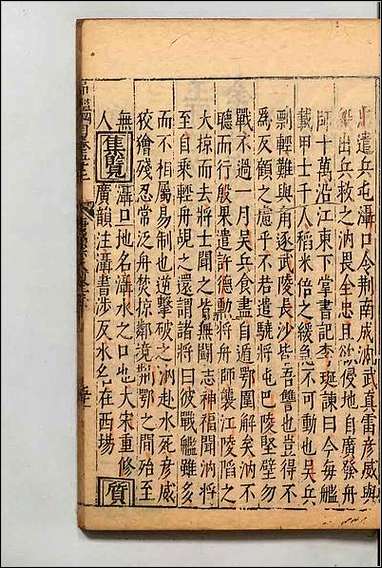 北遣兵屯灄口令荆南成汭武真雷彦威與
船出兵救之汭畏全忠且欲侵地自廣發舟
師十萬沿江東下掌書記李珽諫曰今每艦
載甲士千人稻米倍之緩急不可動也吴兵
剽輕難與角逐武陵長沙皆吾讐也豈得不
爲反顧之慮乎不若遣驍將屯巴陵堅壁勿
戰不過一月吴兵食盡自遁鄂圍解矣汭不
聽而行殷果遣許德勳將舟師襲江陵陷之
大掠而去將士聞之皆無鬭志神福聞汭將
至自乘輕舟覘之還謂諸將曰彼戰艦雖多
而不相屬易制也逆擊破之汭赴水死彦威
狡獪殘忍常泛舟焚掠鄰境荆鄂之間殆至
無人 集覽 灄口地名灄水之口也大宋重修
廣韻注灄書涉反水名在西陽 質